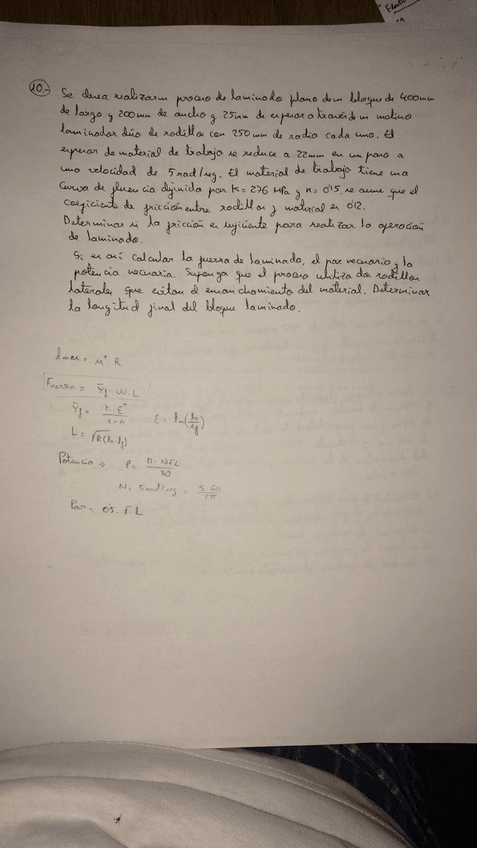 20.- Se desea realizar un proceso de laminado plano de un bloque de 400mm
de largo y 200mm de ancho y 25mm de espesor a través de un molino
laminador dúo de rodillos con 250mm de radio cada uno. El
espesor de material de trabajo se reduce a 22mm en un paso a
una velocidad de 5 rad/seg. El material de trabajo tiene una
curva de fluencia definida por K= 276 MPa y n= 0'15, se asume que el
coeficiente de fricción entre rodillos y material es 0'12.
Determinar si la fricción es suficiente para realizar la operación
de laminado.
Si es así calcular la fuerza de laminado, el par necesario y la
potencia necesaria. Suponga que el proceso utiliza dos rodillos
laterales que evitan el ensanchamiento del material. Determinar
la longitud final del bloque laminado.
dmax = μ² R
Fuerza = Ȳf · W · L
Ȳf = K · ε^n / 1+n ε = ln(to/tf)
L = √R(to-tf)
Potencia → P = π · NFL / 30
N = 5 rad/seg = 5 · 60 / 2π
Par = 0'5 · F L